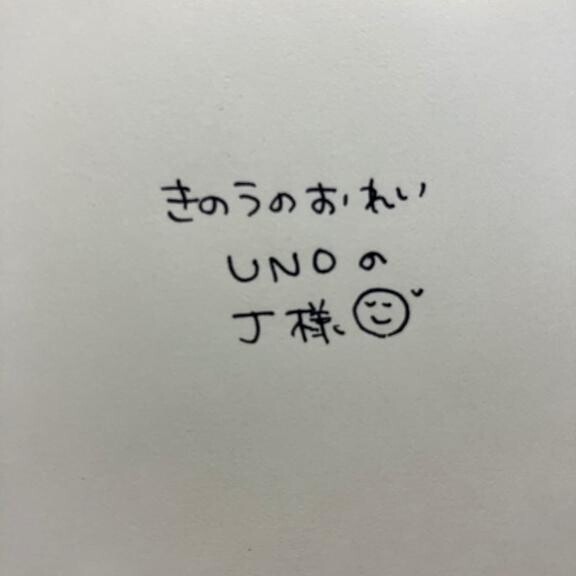 きのうのおれい
UNOの
J様